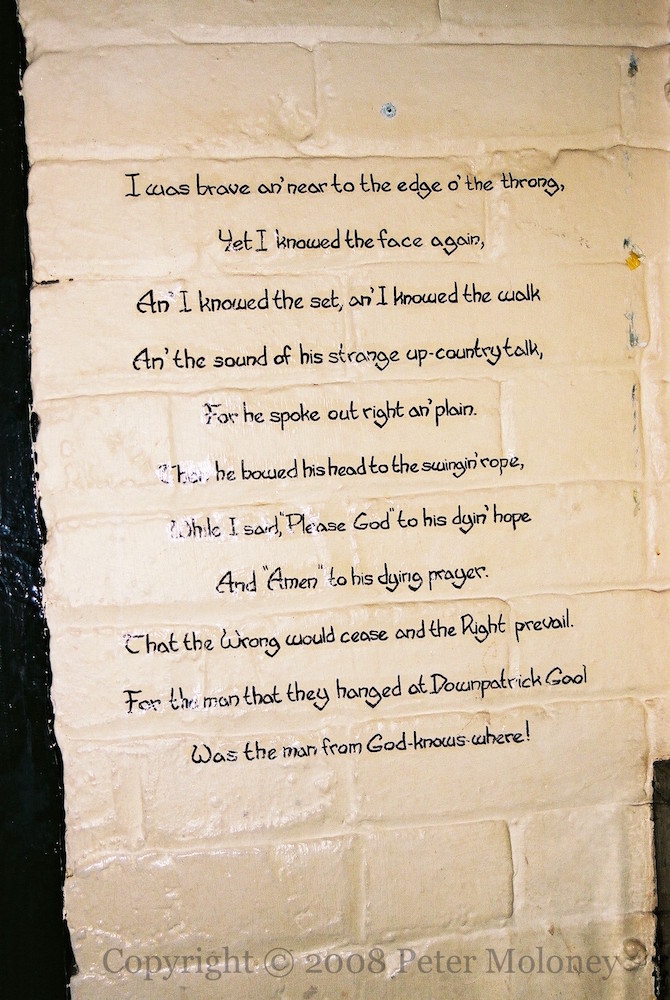 I was brave an' near to the edge o' the throng,
Yet I knowed the face again,
An' I knowed the set, an' I knowed the walk
An' the sound of his strange up-country talk,
For he spoke out right an' plain.
Then he bowed his head to the swingin' rope,
While I said, "Please God" to his dyin' hope
And "Amen" to his dying prayer.
That the Wrong would cease and the Right prevail.
For the man that they hanged at Downpatrick Gaol
Was the man from God-knows-where!
Copyright © 2008 Peter Moloney